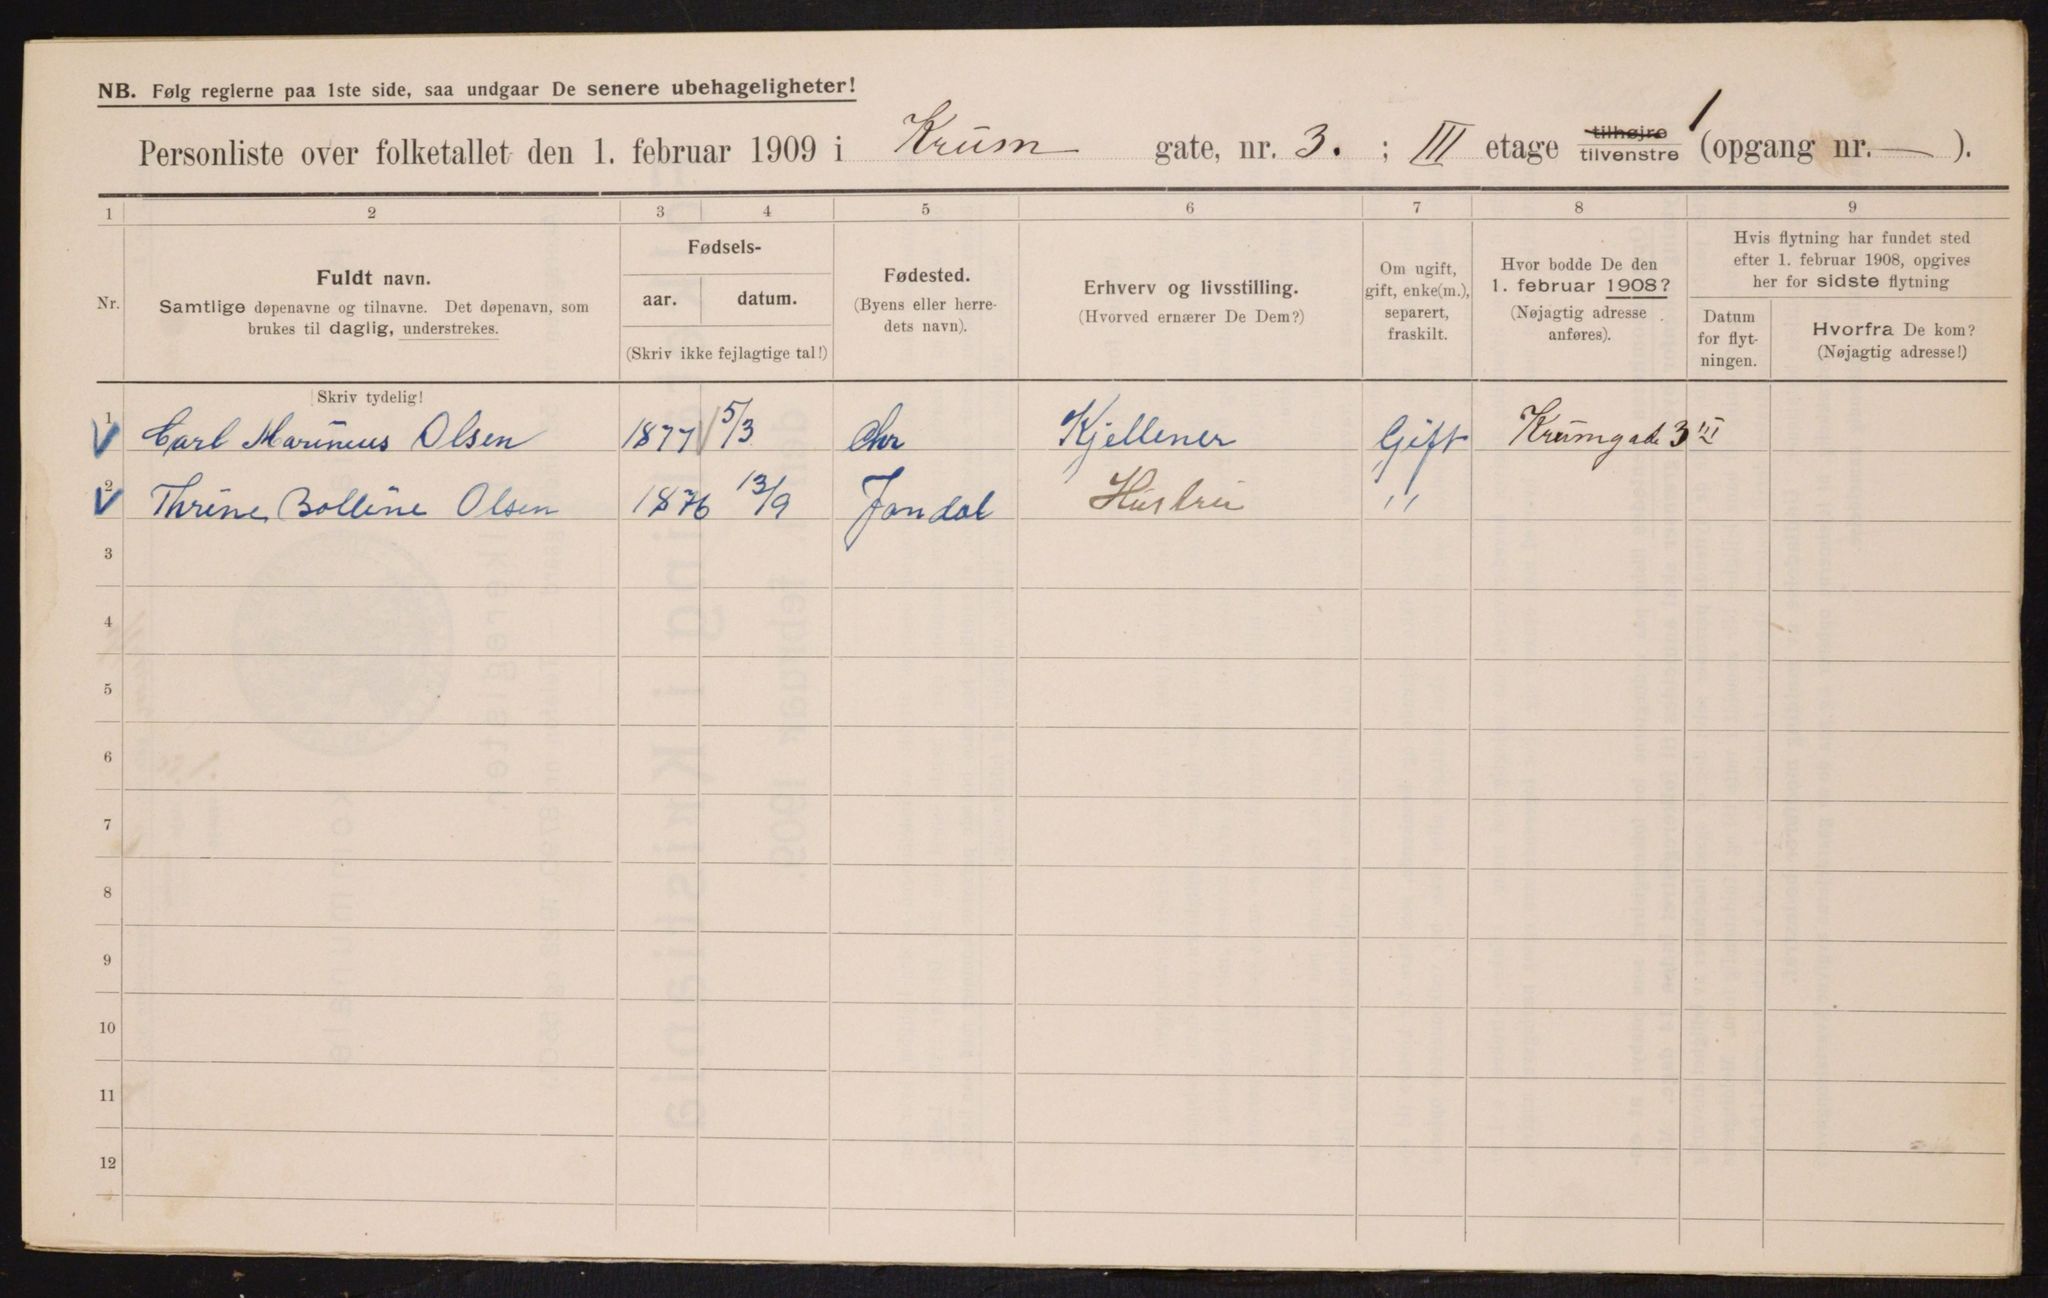 NB. Følg reglerne paa 1ste side, saa undgaar De senere ubehageligheter!
Personliste over folketallet den 1. februar 1909 i Krum gate, nr. 3. ; III etage tilhøjre tilvenstre 1 (opgang nr. — ).
1 2 3 4 5 6 7 8 9
Nr.
Fuldt navn.
Samtlige døpenavne og tilnavne. Det døpenavn, som
brukes til daglig, understrekes.
Fødsels-
aar. datum.
(Skriv ikke fejlagtige tal!)
Fødested.
(Byens eller herre-
dets navn).
Erhverv og livsstilling.
(Hvorved ernærer De Dem?)
Om ugift,
gift, enke(m.),
separert,
fraskilt.
Hvor bodde De den
1. februar 1908?
(Nøjagtig adresse
anføres).
Hvis flytning har fundet sted
efter 1. februar 1908, opgives
her for sidste flytning
Datum
for flyt-
ningen.
Hvorfra De kom?
(Nøjagtig adresse!)
Skriv tydelig!
1 Carl Marinius Olsen 1877 5/3 Chr Kjellener Gift Krumgade 3 III
2 Thrine Bolline Olsen 1876 13/9 Jondal Hustru "
3
4
5
6
7
8
9
10
11
12